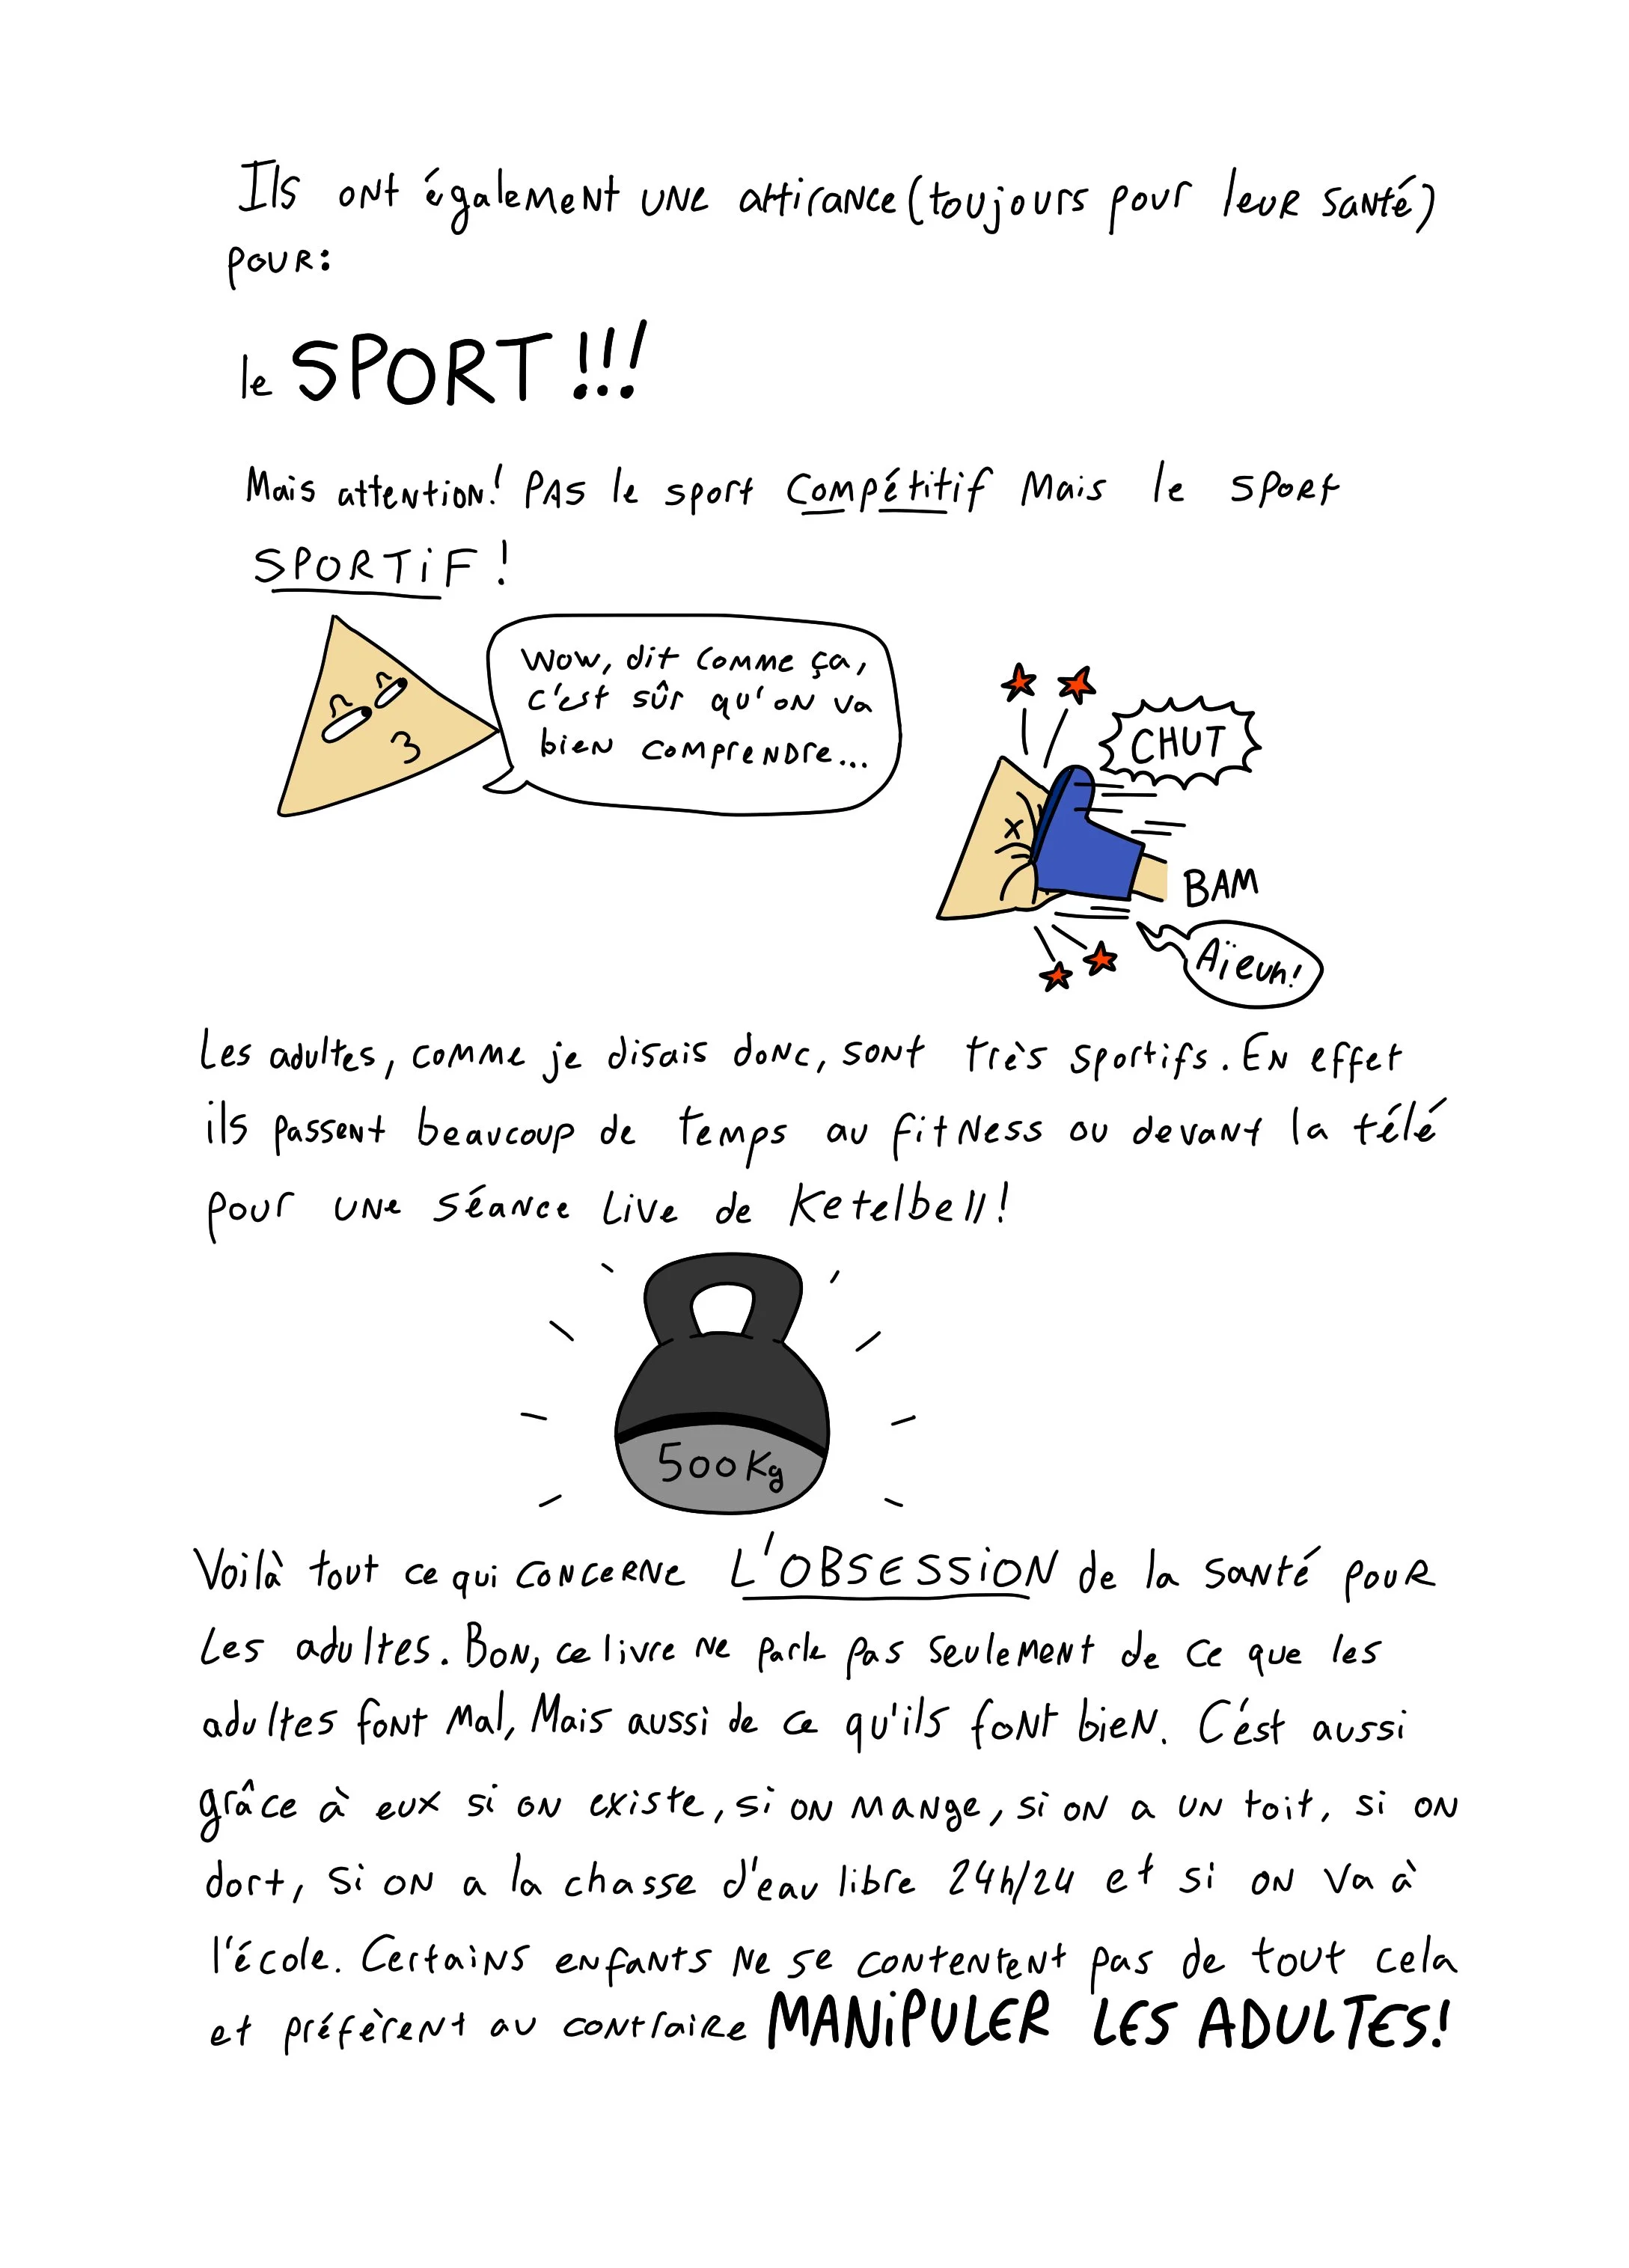 Ils ont également une attirance (toujours pour leur santé)
pour:
le SPORT!!!
Mais attention! Pas le sport compétitif mais le sport
SPORTIF!
Wow, dit comme ça,
c'est sûr qu'on va
bien comprendre...
CHUT
BAM
Aïeuh!
Les adultes, comme je disais donc, sont très sportifs. En effet
ils passent beaucoup de temps au fitness ou devant la télé
pour une séance live de Ketelbell!
500Kg
Voilà tout ce qui concerne L'OBSESSION de la santé pour
les adultes. Bon, ce livre ne parle pas seulement de ce que les
adultes font mal, mais aussi de ce qu'ils font bien. C'est aussi
grâce à eux si on existe, si on mange, si on a un toit, si on
dort, si on a la chasse d'eau libre 24h/24 et si on va à
l'école. Certains enfants ne se contentent pas de tout cela
et préfèrent au contraire MANIPULER LES ADULTES!